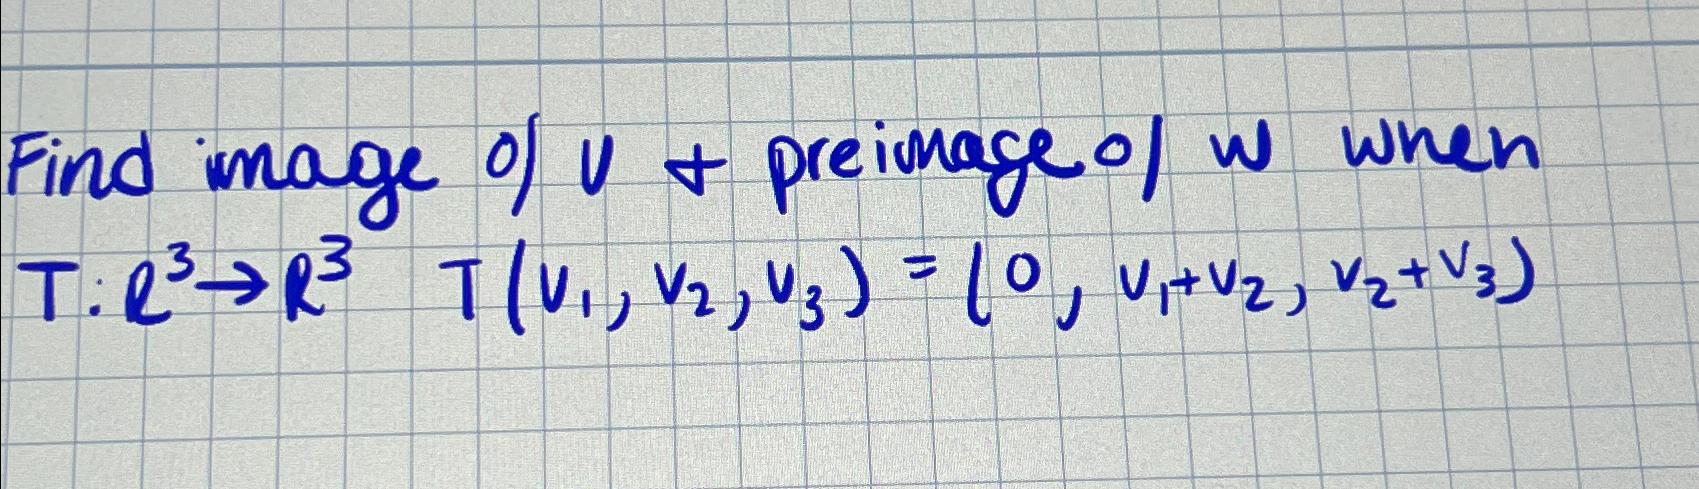 Find image of v + preimage of w when
T: R³→R³ T(v₁, v₂, v₃) = (0, v₁+v₂, v₂+v₃)